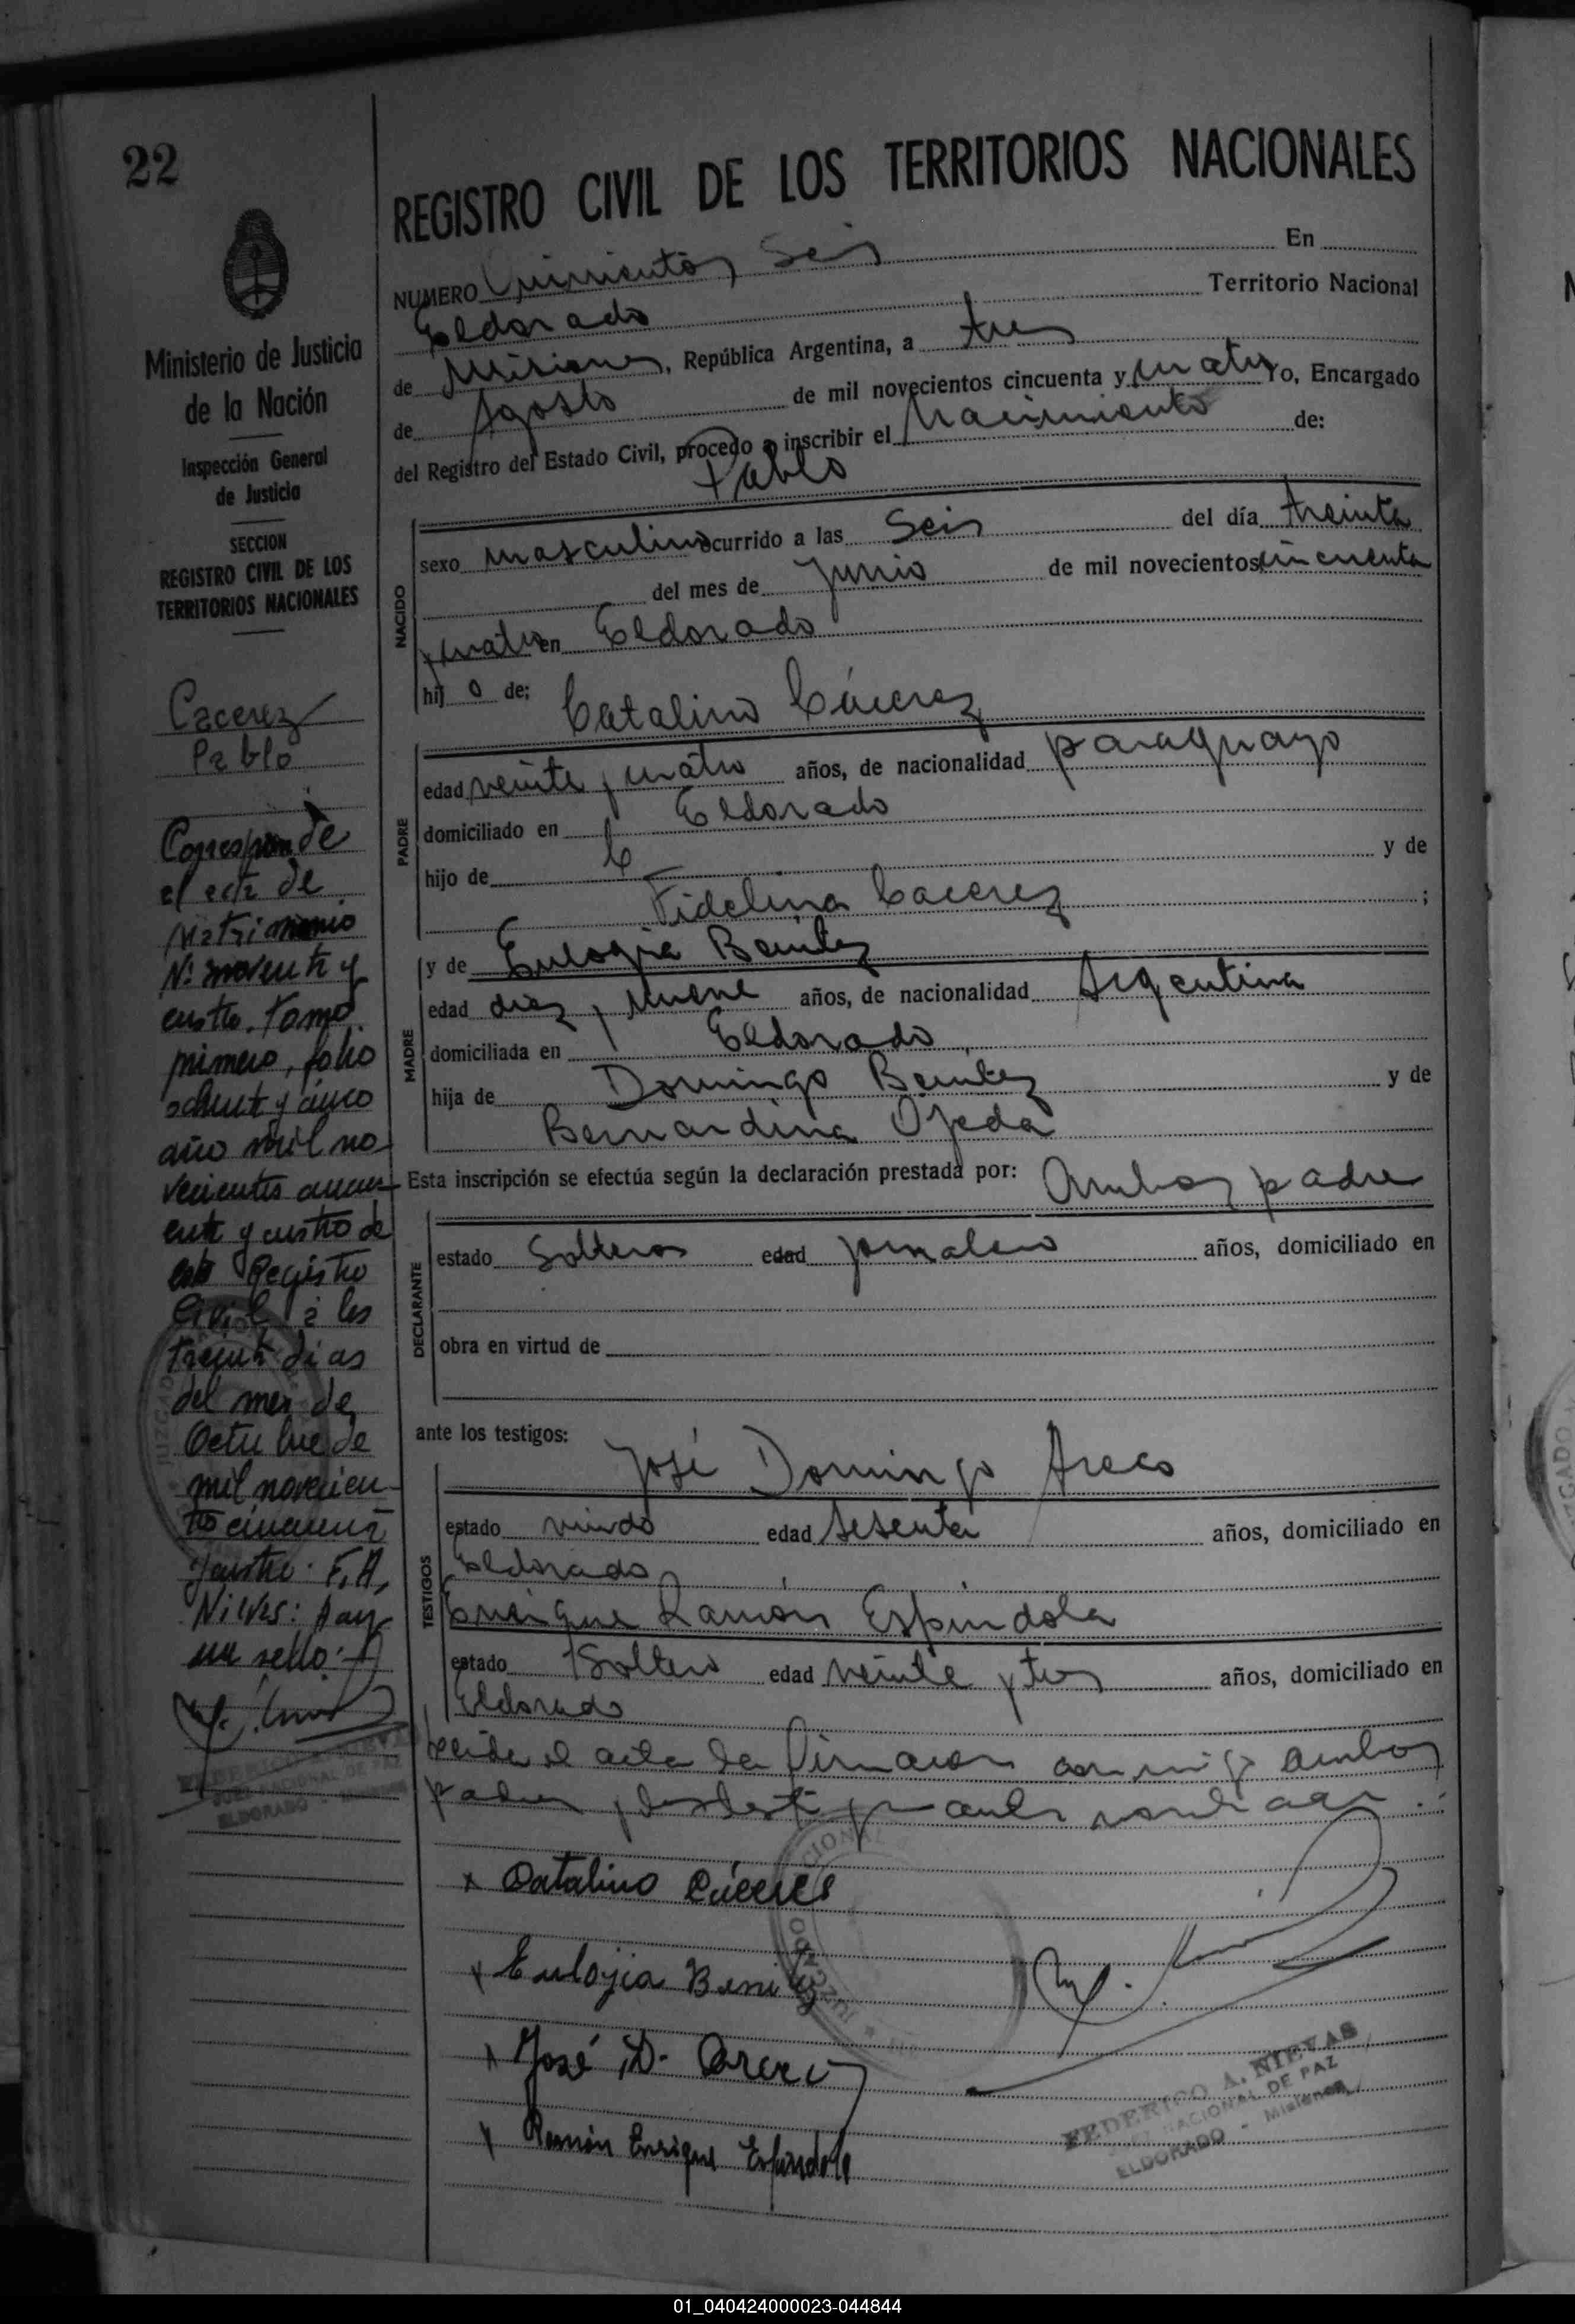 22
REGISTRO CIVIL DE LOS TERRITORIOS NACIONALES
NUMERO Quinientos Seis En
Eldorado Territorio Nacional
de Misiones, República Argentina, a tres
de Agosto de mil novecientos cincuenta y cuatro Yo, Encargado
del Registro del Estado Civil, procedo a inscribir el Nacimiento de:
Pablo
NACIDO
sexo masculino ocurrido a las Seis del día treinta
del mes de Junio de mil novecientos cincuenta
y cuatro en Eldorado
hij o de: Catalino Cácerez
PADRE
edad veinte y cuatro años, de nacionalidad paraguayo
domiciliado en Eldorado
hijo de y de
Fidelina Cacerez ;
MADRE
y de Eulogia Benitez
edad diez y nueve años, de nacionalidad Argentina
domiciliada en Eldorado
hija de Domingo Benitez y de
Bernardina Ojeda
Esta inscripción se efectúa según la declaración prestada por: Ambos padre
DECLARANTE
estado Solteros edad jornalero años, domiciliado en
obra en virtud de
ante los testigos:
José Domingo Areco
TESTIGOS
estado viudo edad sesenta años, domiciliado en
Eldorado
Enrique Ramón Espindola
estado Soltero edad veinte y tres años, domiciliado en
Eldorado
el acta la firmaron conmigo ambos
padres y
x Catalino Cáceres
x Eulojia Benitez
x José D. Areco
x Ramón Enrique Espindola
FEDERICO A. NIEVAS
JUEZ NACIONAL DE PAZ
ELDORADO - Misiones
Ministerio de Justicia
de la Nación
Inspección General
de Justicia
SECCION
REGISTRO CIVIL DE LOS
TERRITORIOS NACIONALES
Cacerez
Pablo
Corresponde
el acta de
Matrimonio
Nº noventa y
cuatro, tomo
primero, folio
ochenta y cinco
año mil no-
vecientos cincu-
enta y cuatro de
este Registro
Civil a los
treinta dias
del mes de
Octubre de
mil novecien-
tos cincuenta
y cuatro. F. A,
Nievas: Hay
un sello.
ELDORADO - Misiones
01_040424000023-044844